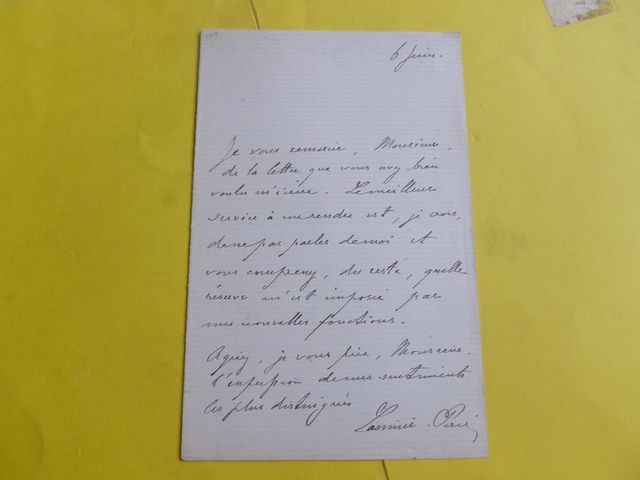 6 Juin.
Je vous remercie, Monsieur,
de la lettre que vous avez bien
voulu m'écrire. Le meilleur
service à me rendre est, je crois,
de ne pas parler de moi et
vous comprenez, du reste, quelle
réserve m'est imposée par
mes nouvelles fonctions.
Agréez, je vous prie, Monsieur
l'expression de mes sentiments
les plus distingués
Casimir-Perier